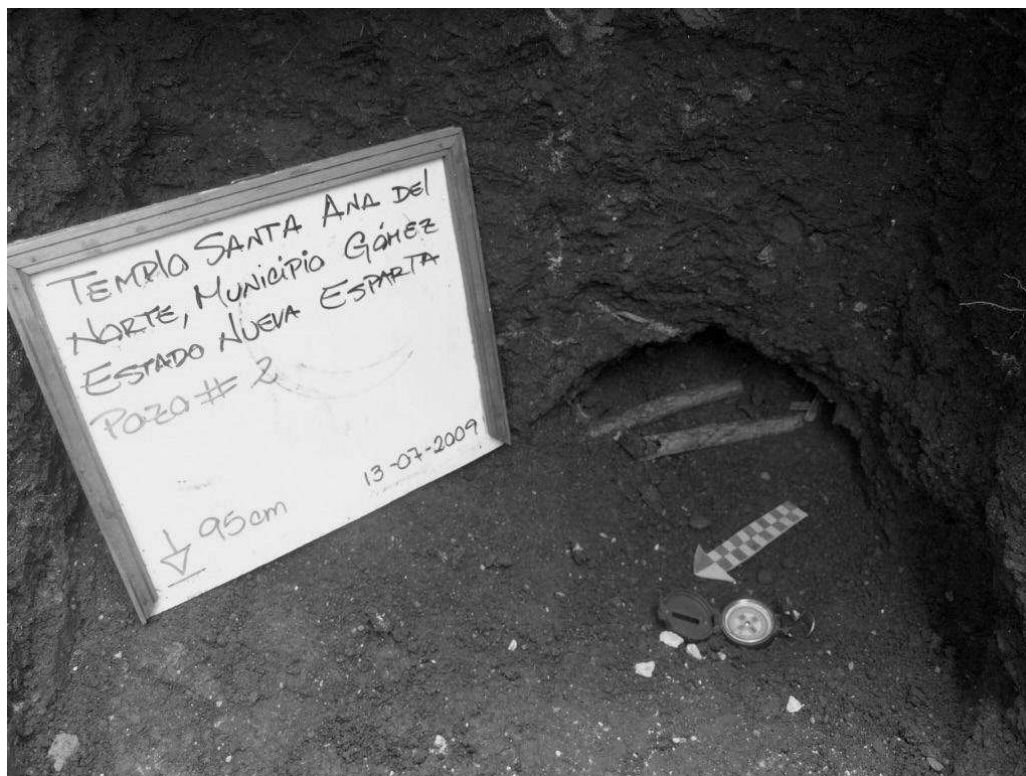 TEMPlO SANTA ANA DEl
NORTE, MUNICIPIO GÓMEZ
ESTADO NUEVA ESPARTA
POZO # 2
13-07-2009
95cm